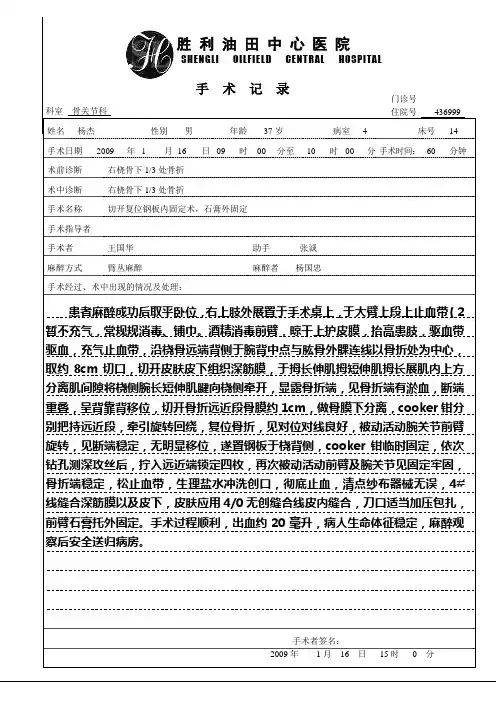 胜利油田中心医院
SHENGLI OILFIELD CENTRAL HOSPITAL
手 术 记 录
门诊号
科室 骨关节科 住院号 436999
姓名 杨杰 性别 男 年龄 37岁 病室 4 床号 14
手术日期 2009 年 1 月 16 日 09 时 00 分至 10 时 00 分 手术时间: 60 分钟
术前诊断 右桡骨下1/3处骨折
术中诊断 右桡骨下1/3处骨折
手术名称 切开复位钢板内固定术,石膏外固定
手术指导者
手术者 王国华 助手 张诚
麻醉方式 臂丛麻醉 麻醉者 杨国忠
手术经过、术中出现的情况及处理:
患者麻醉成功后取平卧位,右上肢外展置于手术桌上,于大臂上段上止血带(2
暂不充气,常规规消毒、铺巾。酒精消毒前臂,晾干上护皮膜,抬高患肢,驱血带
驱血,充气止血带,沿桡骨远端背侧于腕背中点与肱骨外髁连线以骨折处为中心,
取约 8cm 切口,切开皮肤皮下组织深筋膜,于拇长伸肌拇短伸肌拇长展肌内上方
分离肌间隙将桡侧腕长短伸肌腱向桡侧牵开,显露骨折端,见骨折端有淤血,断端
重叠,呈背靠背移位,切开骨折远近段骨膜约1cm,做骨膜下分离,cooker钳分
别把持远近段,牵引旋转回绕,复位骨折,见对位对线良好,被动活动腕关节前臂
旋转,见断端稳定,无明显移位,遂置钢板于桡背侧,cooker 钳临时固定,依次
钻孔测深攻丝后,拧入远近端锁定四枚,再次被动活动前臂及腕关节见固定牢固,
骨折端稳定,松止血带,生理盐水冲洗创口,彻底止血,清点纱布器械无误,4#
线缝合深筋膜以及皮下,皮肤应用4/0无创缝合线皮内缝合,刀口适当加压包扎,
前臂石膏托外固定。手术过程顺利,出血约 20 毫升,病人生命体征稳定,麻醉观
察后安全送归病房。
手术者签名:
2009 年 1 月 16 日 15 时 0 分